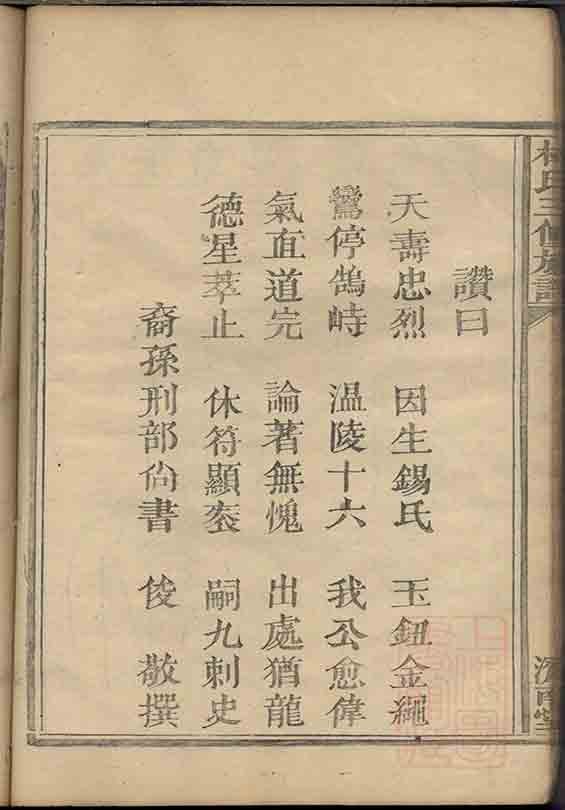 林氏三修族譜
讚曰
天壽忠烈 因生錫氏 玉鈕金繩
鸞停鵠峙 溫陵十六 我公愈偉
氣直道完 論著無愧 出處猶龍
德星萃止 休符顯奕 嗣九刺史
裔孫刑部尙書 俊 敬撰
濟南堂